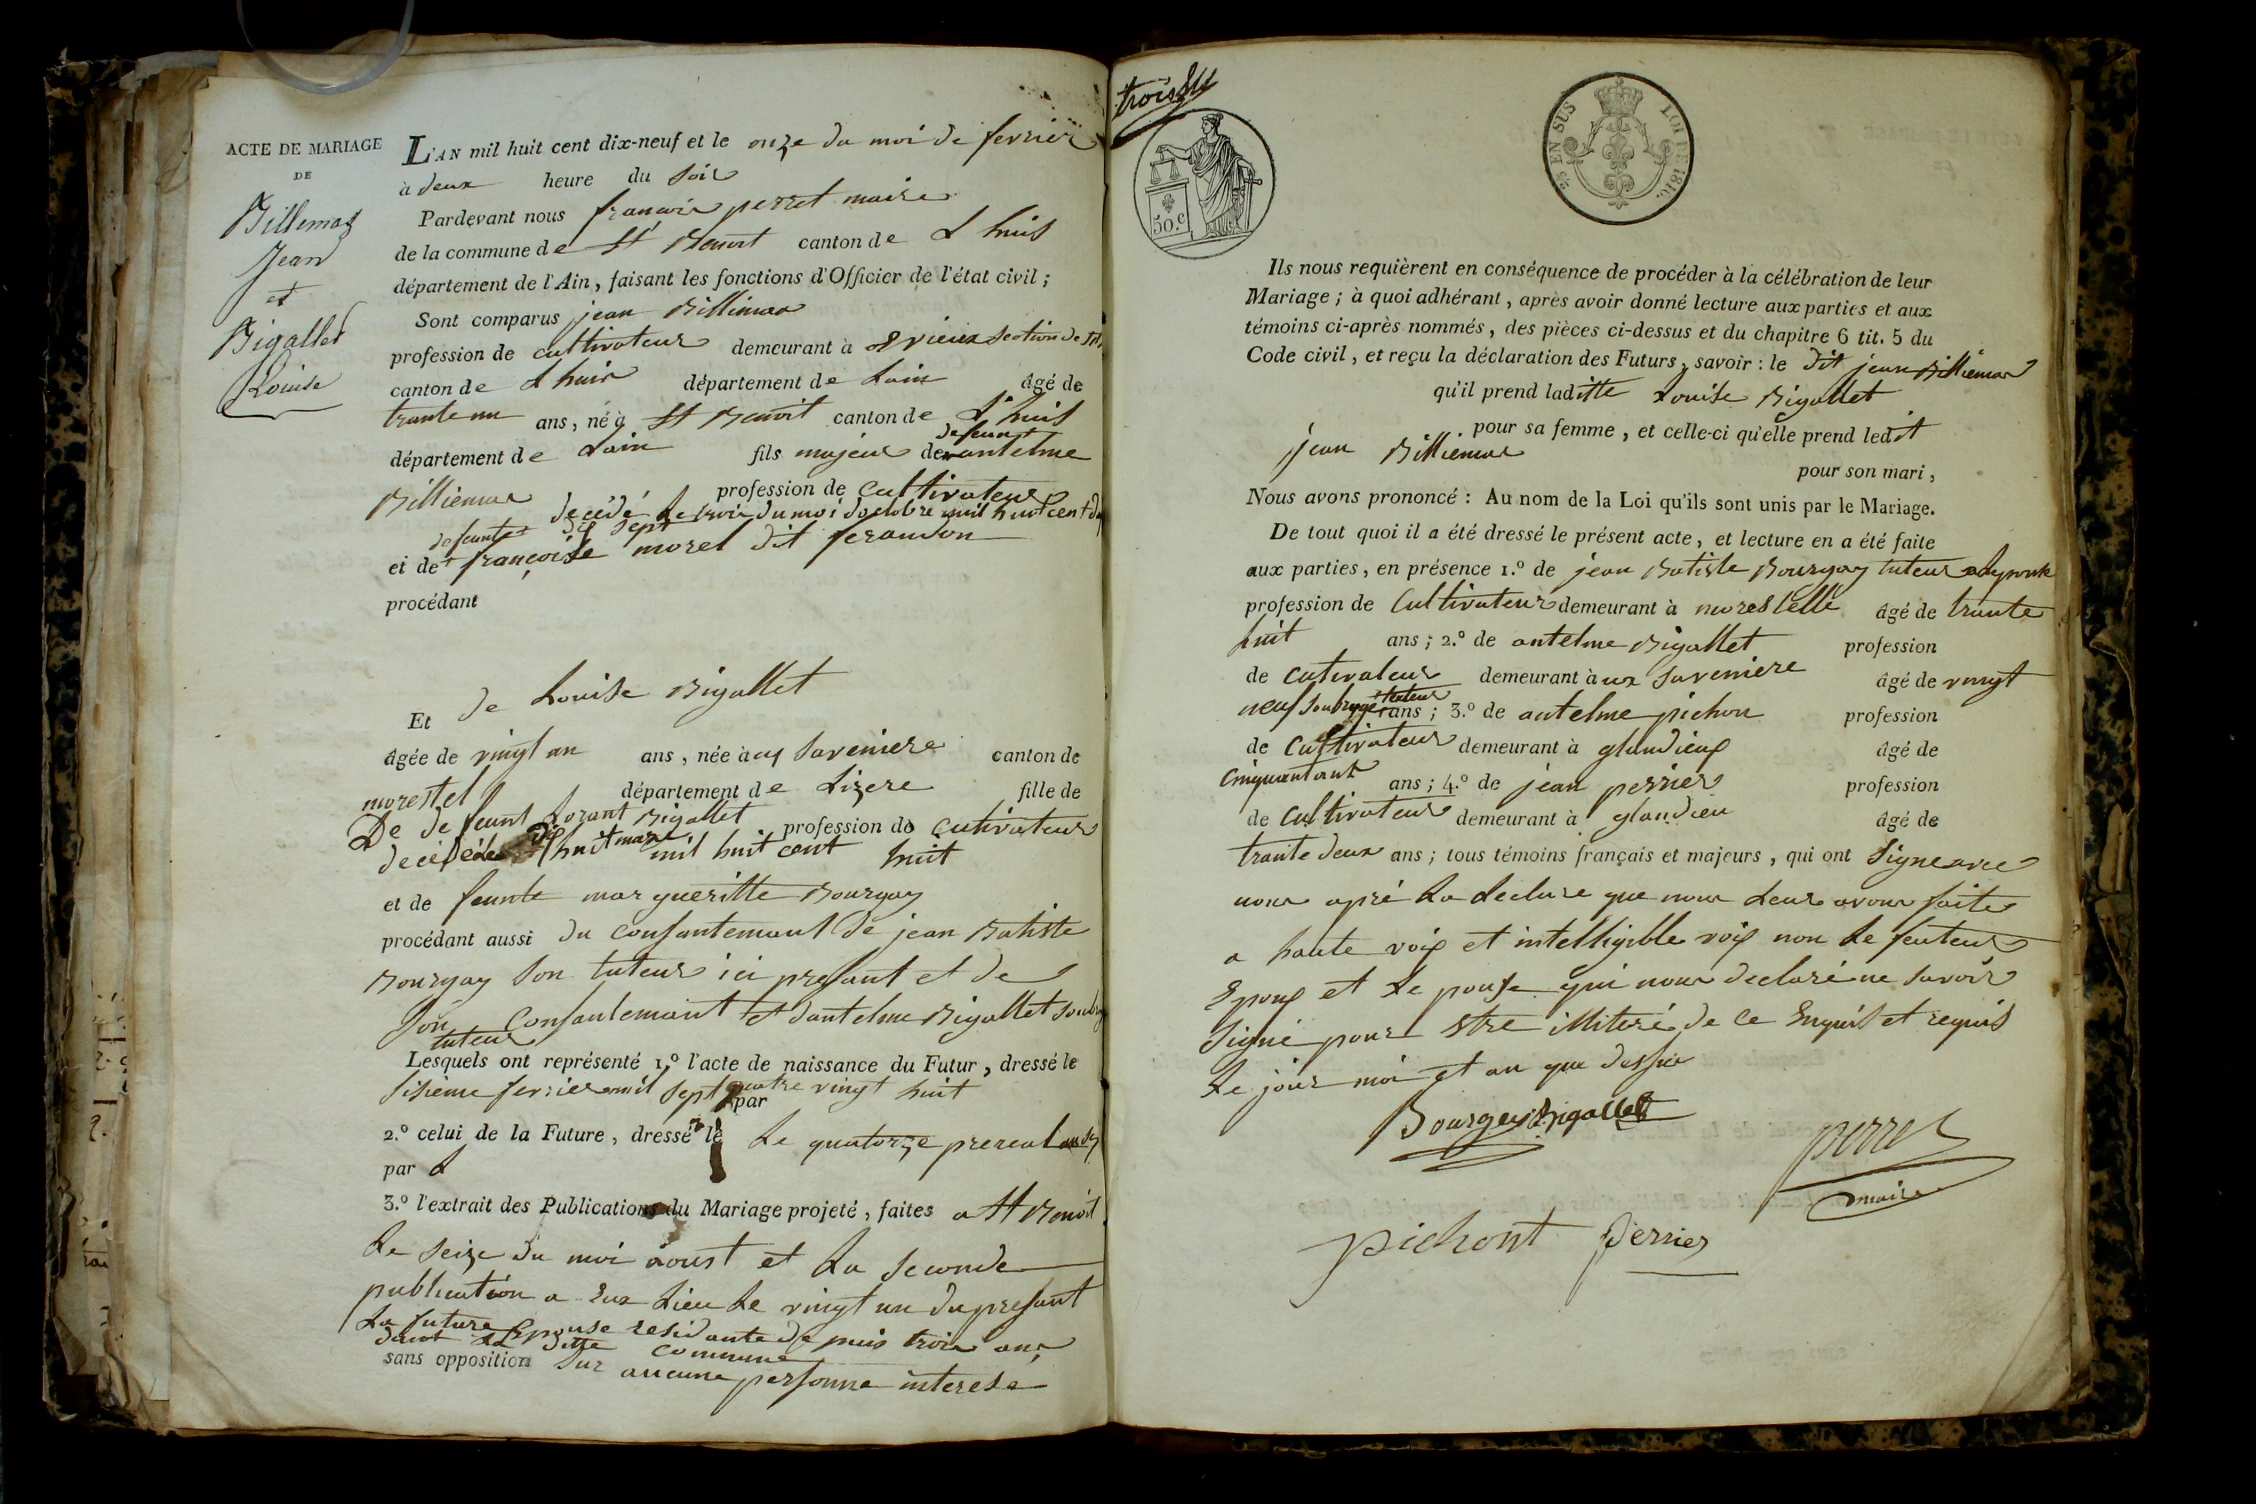 ACTE DE MARIAGE
DE
Billemaz
Jean
et
Bigallet
Louise
L'AN mil huit cent dix-neuf et le onze du moi de fevrier
à deux heure du soir
Pardevant nous francois perret maire
de la commune de St Benoit canton de L huis
département de l'Ain, faisant les fonctions d'Officier de l'état civil ;
Sont comparus jean Billiemaz
profession de cultivateur demeurant à evrieux section de St
canton de L huis département de Lain âgé de
trante un ans, né à St Benoit canton de L'huis
defeun
département de Lain fils majeur de antelme
Billiemaz profession de cultivateur
decédé le trois du moi doctobre mil huit cent
defeunte dix sept
et de françoise morel dit ferandon
procédant
Et de Louise Bigallet
âgée de vingt un ans, née à saveniere canton de
morestel département de Lizere fille de
De defeunt Lorant Bigallet profession de cutivateur
decédé dix huit mars mil huit cent huit
et de feunte margueritte Bourgay
procédant aussi du consantemant de jean Batiste
Bourgay son tuteur ici presant et de
son consantemant et dantelme Bigallet soubro
tuteur
Lesquels ont représenté 1.º l'acte de naissance du Futur, dressé le
sisième fevrier mil sept quatre vingt huit
par
2.º celui de la Future, dressé le Le quatorze prereal an
par
3.º l'extrait des Publications du Mariage projeté, faites a St Benoit
Le seize du moi aoust et La seconde
publication a eux Lieu Le vingt un du presant
La future Epouse residante depuis trois ans
dant La ditte commune
sans opposition sur aucune personne interese
trois
50.c
25 EN SUS LOI DE 1816.
Ils nous requièrent en conséquence de procéder à la célébration de leur
Mariage ; à quoi adhérant, après avoir donné lecture aux parties et aux
témoins ci-après nommés, des pièces ci-dessus et du chapitre 6 tit. 5 du
Code civil, et reçu la déclaration des Futurs, savoir : le dit jean Billiemaz
qu'il prend laditte Louise Bigallet
pour sa femme, et celle-ci qu'elle prend ledit
jean Billiemaz
pour son mari,
Nous avons prononcé : Au nom de la Loi qu'ils sont unis par le Mariage.
De tout quoi il a été dressé le présent acte, et lecture en a été faite
aux parties, en présence 1.º de jean Batiste Bourgay tuteur
profession de Cultivateur demeurant à morestelle âgé de trante
huit ans ; 2.º de antelme Bigallet profession
de cutivateur demeurant à ux saveniere âgé de vingt
tuteur
neuf soubroge ans ; 3.º de antelme pichon profession
de Cultivateur demeurant à glandieux âgé de
cinquant ans ; 4.º de jean perrier profession
de cultivateur demeurant à glandieu âgé de
trante deux ans ; tous témoins français et majeurs, qui ont signe avec
nous apré La Lecture que nous Leur avons faite
a haute voix et intelligible voix non Le feuteur
Epoux et Le pouse qui nous declaré ne savoir
signé pour Etre illiteré de ce Enquis et requis
Le jour moi et an que dessus
Bourgey Bigallet
perret
maire
pichont perrier